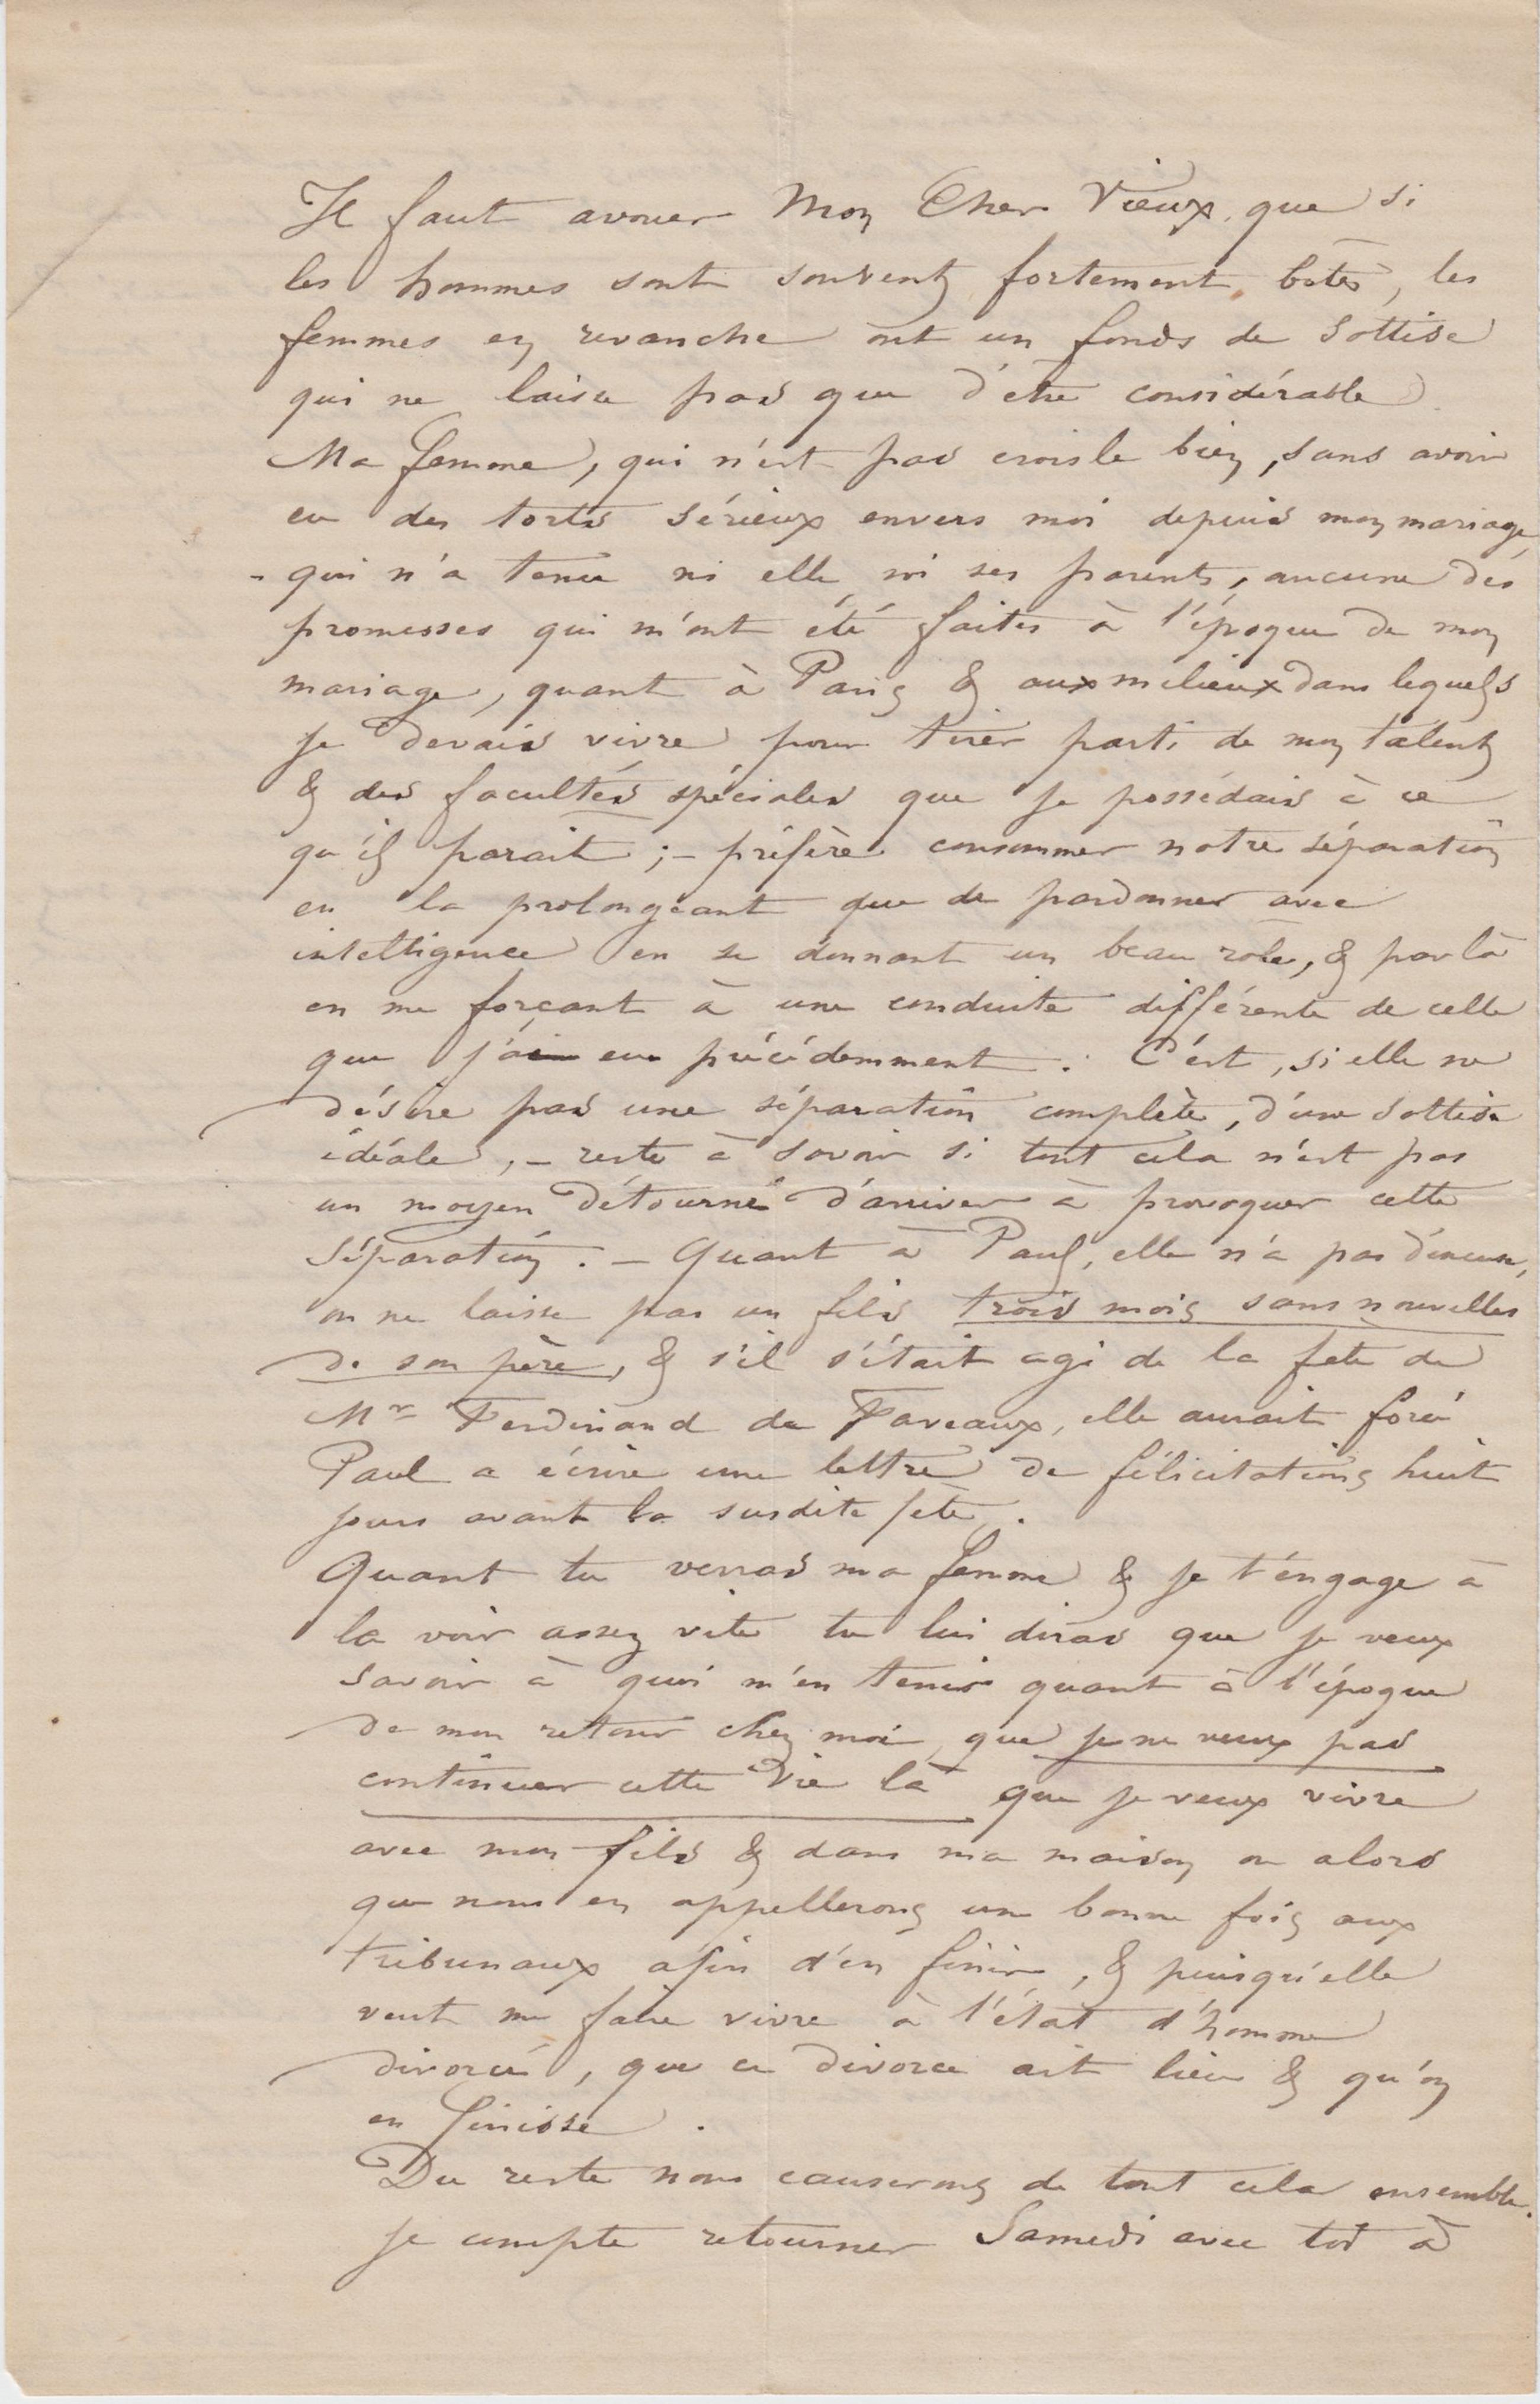 Il faut avouer Mon Cher Vieux que si
les hommes sont souvent fortement bêtes, les
femmes en revanche ont un fonds de sottise
qui ne laisse pas que d'être considérable
Ma femme, qui n'est pas crois le bien, sans avoir
eu des torts sérieux envers moi depuis mon mariage,
- qui n'a tenu ni elle ni ses parents, aucune des
promesses qui m'ont été faites à l'époque de mon
mariage, quant à Paris & aux milieux dans lequels
je devais vivre pour tirer parti de mon talent
& des facultés spéciales que je possédais à ce
qu'il parait ; - préfère consommer notre séparation
en la prolongeant que de pardonner avec
intelligence en se donnant un beau rôle, & par là
en me forçant à une conduite différente de celle
que j'ai eue précédemment. C'est, si elle ne
désire pas une séparation complète, d'une sottise
idéale, - reste à savoir si tout cela n'est pas
un moyen détourné d'arriver à provoquer cette
séparation. - Quant à Paul, elle n'a pas d'excuse,
on ne laisse pas un fils trois mois sans nouvelles
de son père, & s'il s'était agi de la fête de
Mr Ferdinand de Faveaux, elle aurait forcé
Paul a écrire une lettre de félicitations huit
jours avant la susdite fête.
Quant tu verras ma femme & je t'engage à
la voir assez vite tu lui diras que je veux
savoir à quoi m'en tenir quant à l'époque
de mon retour chez moi, que je ne veux pas
continuer cette vie là que je veux vivre
avec mon fils & dans ma maison ou alors
que nous en appellerons une bonne fois aux
tribunaux afin d'en finir, & puisqu'elle
veut me faire vivre à l'état d'homme
divorcé, que ce divorce ait lieu & qu'on
en finisse.
Du reste nous causerons de tout cela ensemble.
Je compte retourner Samedi avec toi à